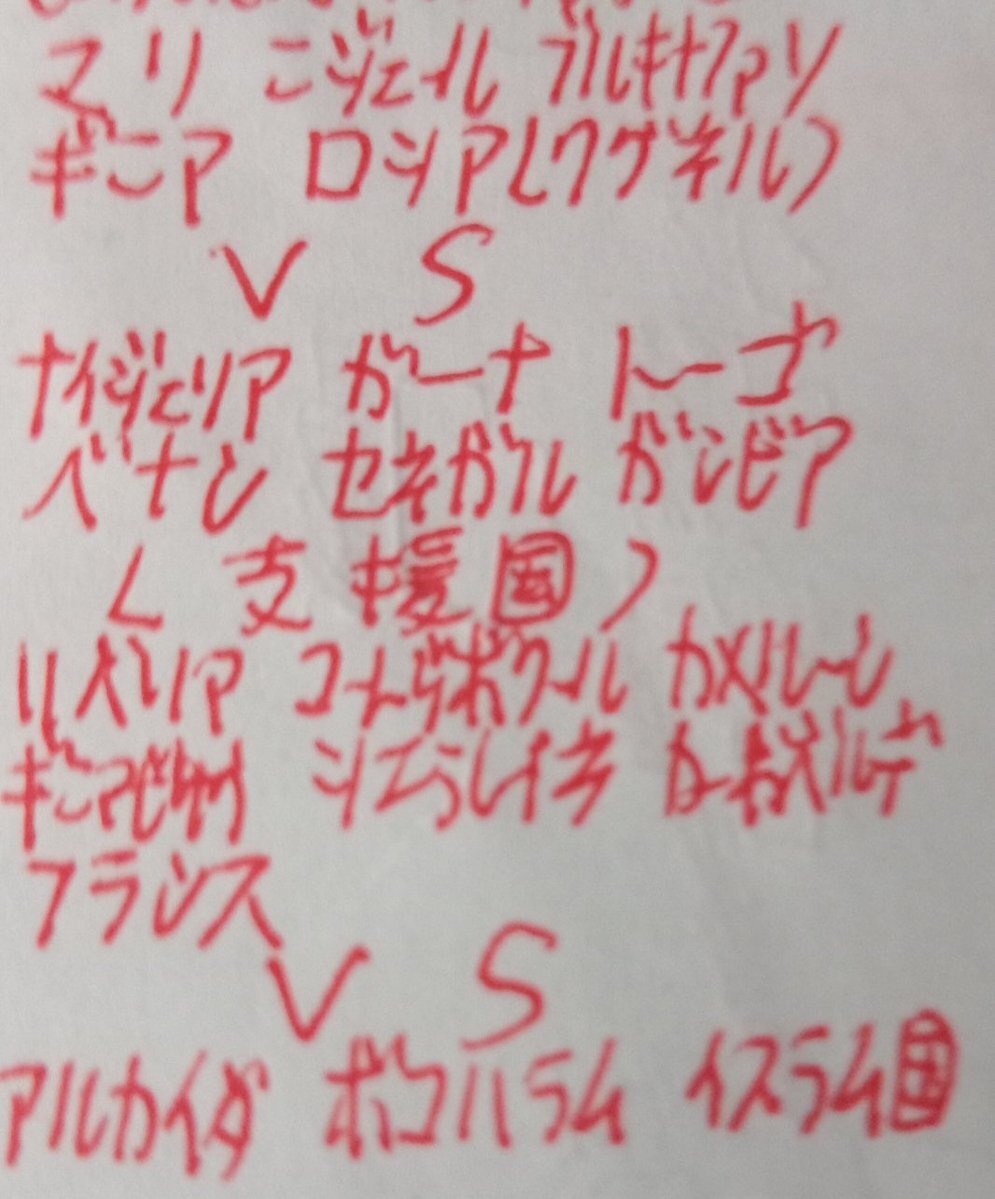 マリ ニジェール ブルキナファソ
ギニア ロシア(ワグネル)
VS
ナイジェリア ガーナ トーゴ
ベナン セネガル ガンビア
(支援国)
リベリア コートジボワール カメルーン
ギニアビサウ シエラレオネ カーボベルデ
フランス
VS
アルカイダ ボコハラム イスラム国